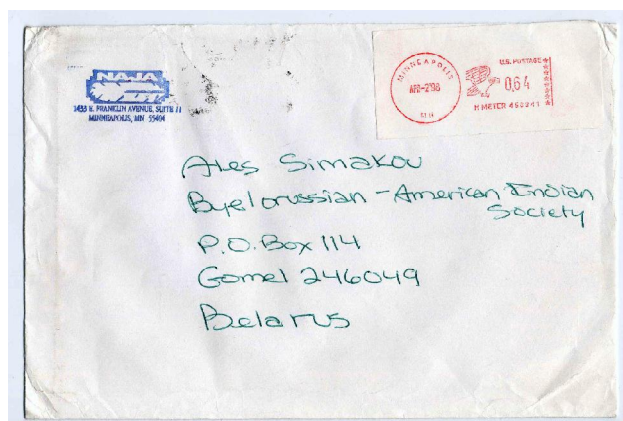 NAJA
1433 E. FRANKLIN AVENUE, SUITE 11
MINNEAPOLIS, MN 55404
MINNEAPOLIS
APR-2'98
MN
U.S. POSTAGE
0.64
H METER 450241
Ales Simakov
Byelorussian-American Indian
Society
P.O. Box 114
Gomel 246049
Belarus